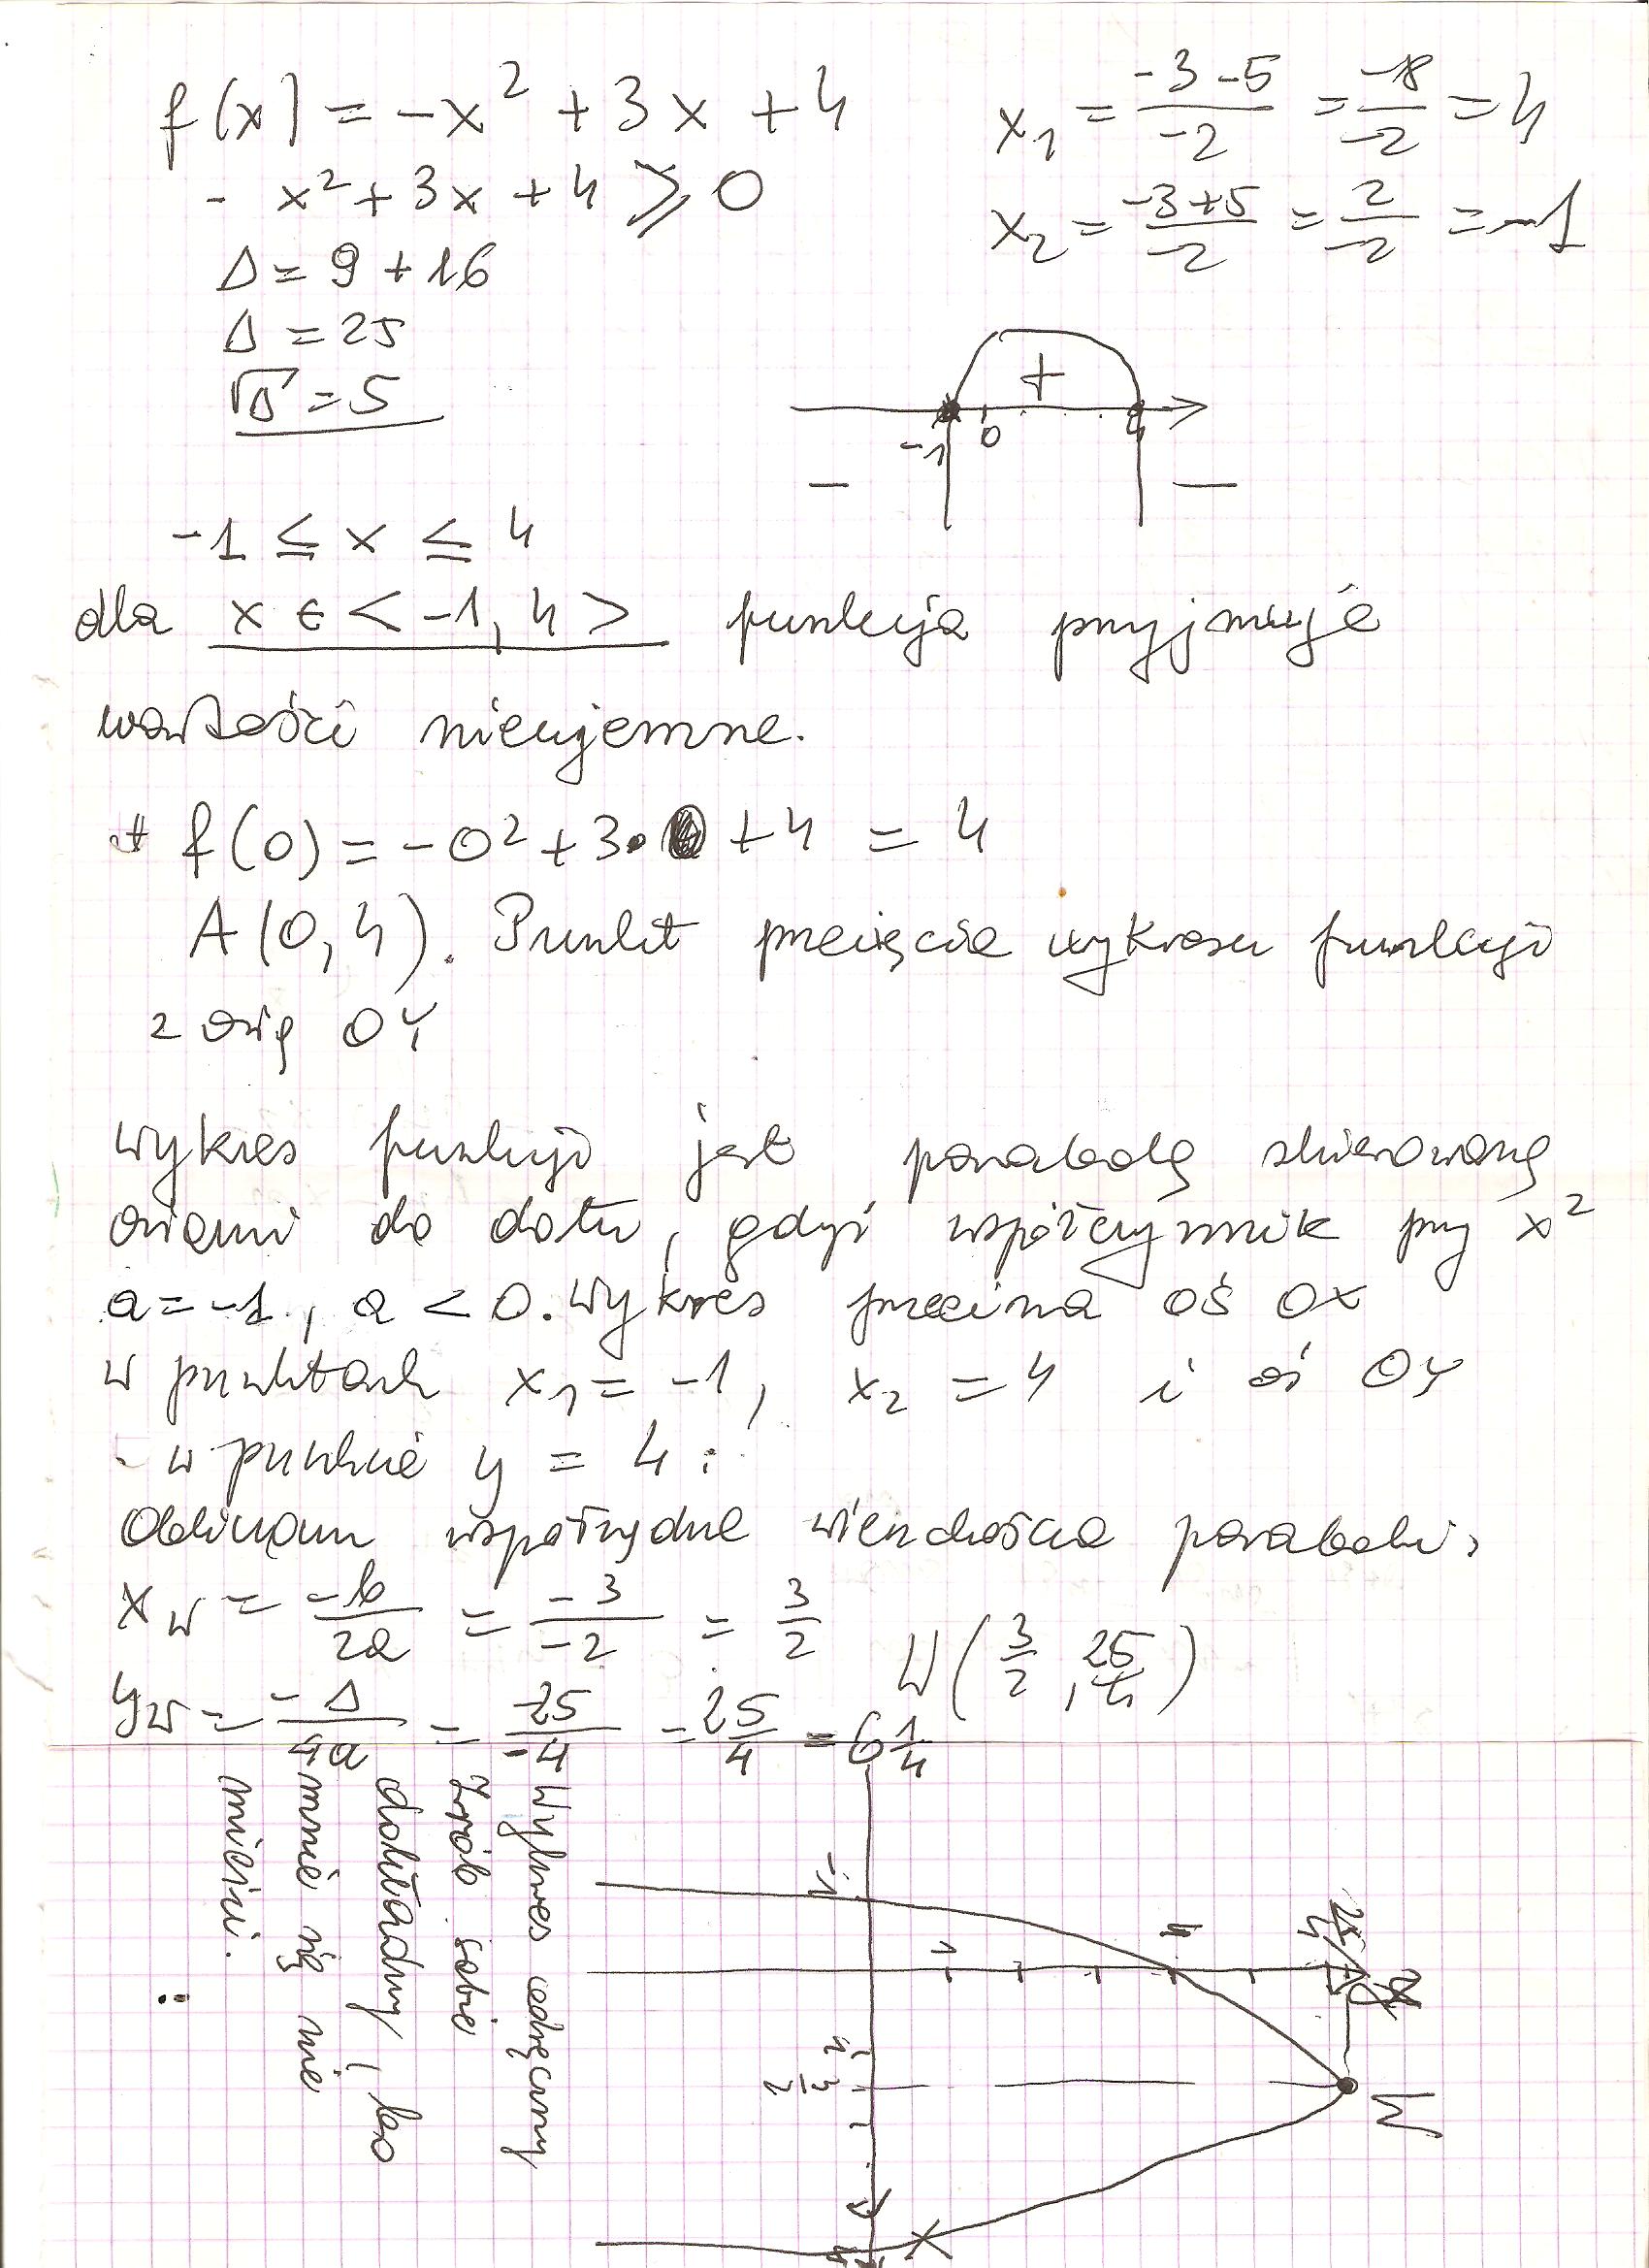 f(x) = -x² + 3x + 4
- x² + 3x + 4 ⩾ 0
Δ = 9 + 16
Δ = 25
√Δ = 5
x₁ = (-3-5)/(-2) = (-8)/(-2) = 4
x₂ = (-3+5)/(-2) = 2/(-2) = -1
+
-1 0 4
- -
-1 ≤ x ≤ 4
dla x ∈ < -1, 4 > funkcja przyjmuje
wartości nieujemne.
f(0) = -0² + 3·0 + 4 = 4
A(0,4). Punkt przecięcia wykresu funkcji
z osią OY
Wykres funkcji jest parabolą skierowaną
ramionami do dołu, gdyż współczynnik przy x²
a = -1, a < 0. Wykres przecina oś OX
w punktach x₁ = -1, x₂ = 4 i oś OY
w punkcie y = 4.
Obliczam współrzędne wierzchołka paraboli:
x_w = -b/2a = -3/-2 = 3/2
W(3/2, 25/4)
y_w = -Δ/4a = -25/-4 = 25/4 = 6 1/4
Wykres odręczny
Zrób sobie
dokładny, bo
mnie się nie
mieści.
-1
1
4
25/4
1
3/2
W
X